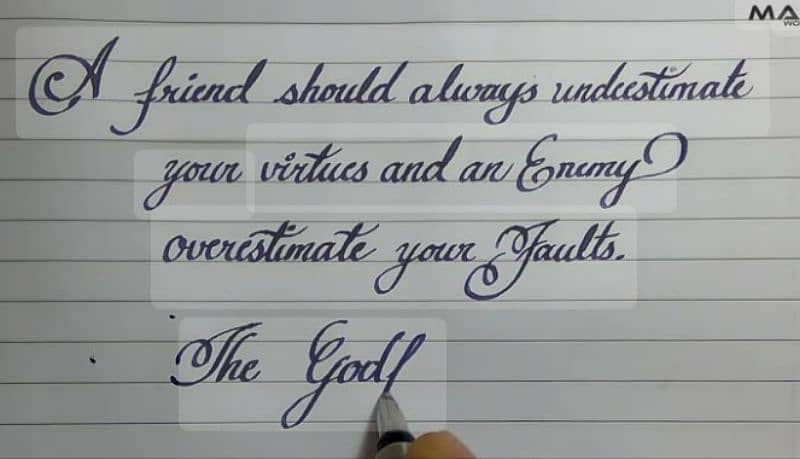 MA
WO
A friend should always undeestimate
your virtues and an Enemy
overestimate your Faults.
The Godf